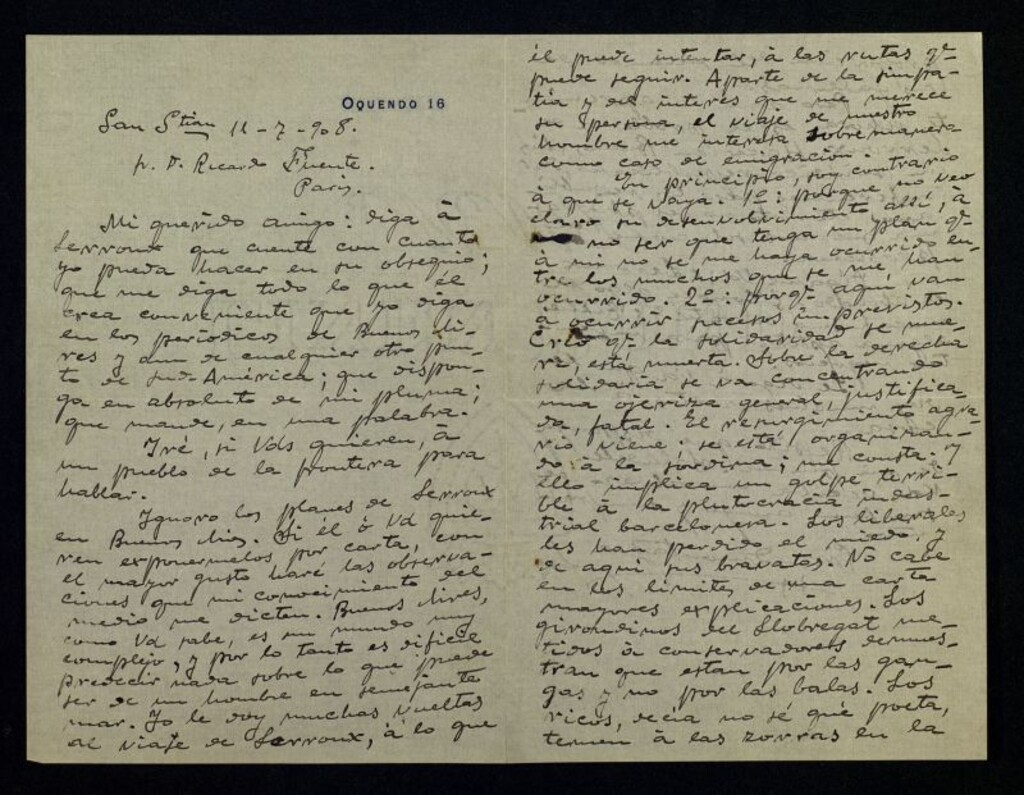 OQUENDO 16
San Stian 11-7-908.
Sr. D. Ricardo Fuente.
Paris.
Mi querido amigo: diga à
Lerroux que cuente con cuanto
yo pueda hacer en su obsequio;
que me diga todo lo que él
crea conveniente que yo diga
en los periódicos de Buenos Ai-
res y aun de cualquier otro pun-
to de Sud-América; que dispon-
ga en absoluto de mi pluma;
que mande, en una palabra.
Iré, si Vds quieren, à
un pueblo de la frontera para
hablar.
Ignoro los planes de Lerroux
en Buenos Aires. Si él ò Vd quie-
ren exponermelos por carta, con
el mayor gusto haré las observa-
ciones que mi conocimiento del
medio me dicten. Buenos Aires,
como Vd sabe, es un mundo muy
complejo, y por lo tanto es dificil
predecir nada sobre lo que puede
ser de un hombre en semejante
mar. Yo le doy muchas vueltas
al viaje de Lerroux, à lo que
él puede intentar, à las rutas qe
puede seguir. Aparte de la simpa-
tia y del interes que me merece
su persona, el viaje de nuestro
hombre me interesa sobremanera
como caso de emigración.
En principio, soy contrario
à que se vaya. 1º: porque no veo
claro su desenvolvimiento allí, à
no ser que tenga un plan qe
à mi no se me haya ocurrido en-
tre los muchos que se me han
ocurrido. 2º: porqe aqui van
à ocurrir sucesos imprevistos.
Creo qe la solidaridad se mue-
re, está muerta. Sobre la derecha
solidaria se va concentrando
una ojeriza general, justifica-
da, fatal. El resurgimiento agra-
rio viene; se está organizan-
do à la sordina; me consta. Y
ello implica un golpe terri-
ble à la plutocracia indus-
trial barcelonesa. Los liberales
les han perdido el miedo, y
de aqui sus bravatas. No cabe
en los limites de una carta
mayores explicaciones. Los
girondinos del Llobregat me-
tidos à conservadores demues-
tran que estan por las gan-
gas y no por las balas. Los
ricos, decia no sé qué poeta,
temen à las zorras en la